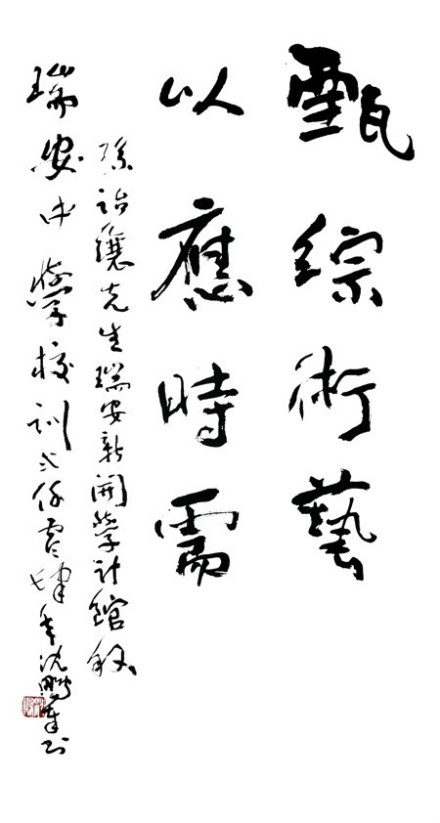 甄綜術藝
以應時需
孫詒讓先生瑞安新開學計館敘
瑞安中學校訓弍仟零年沈鵬